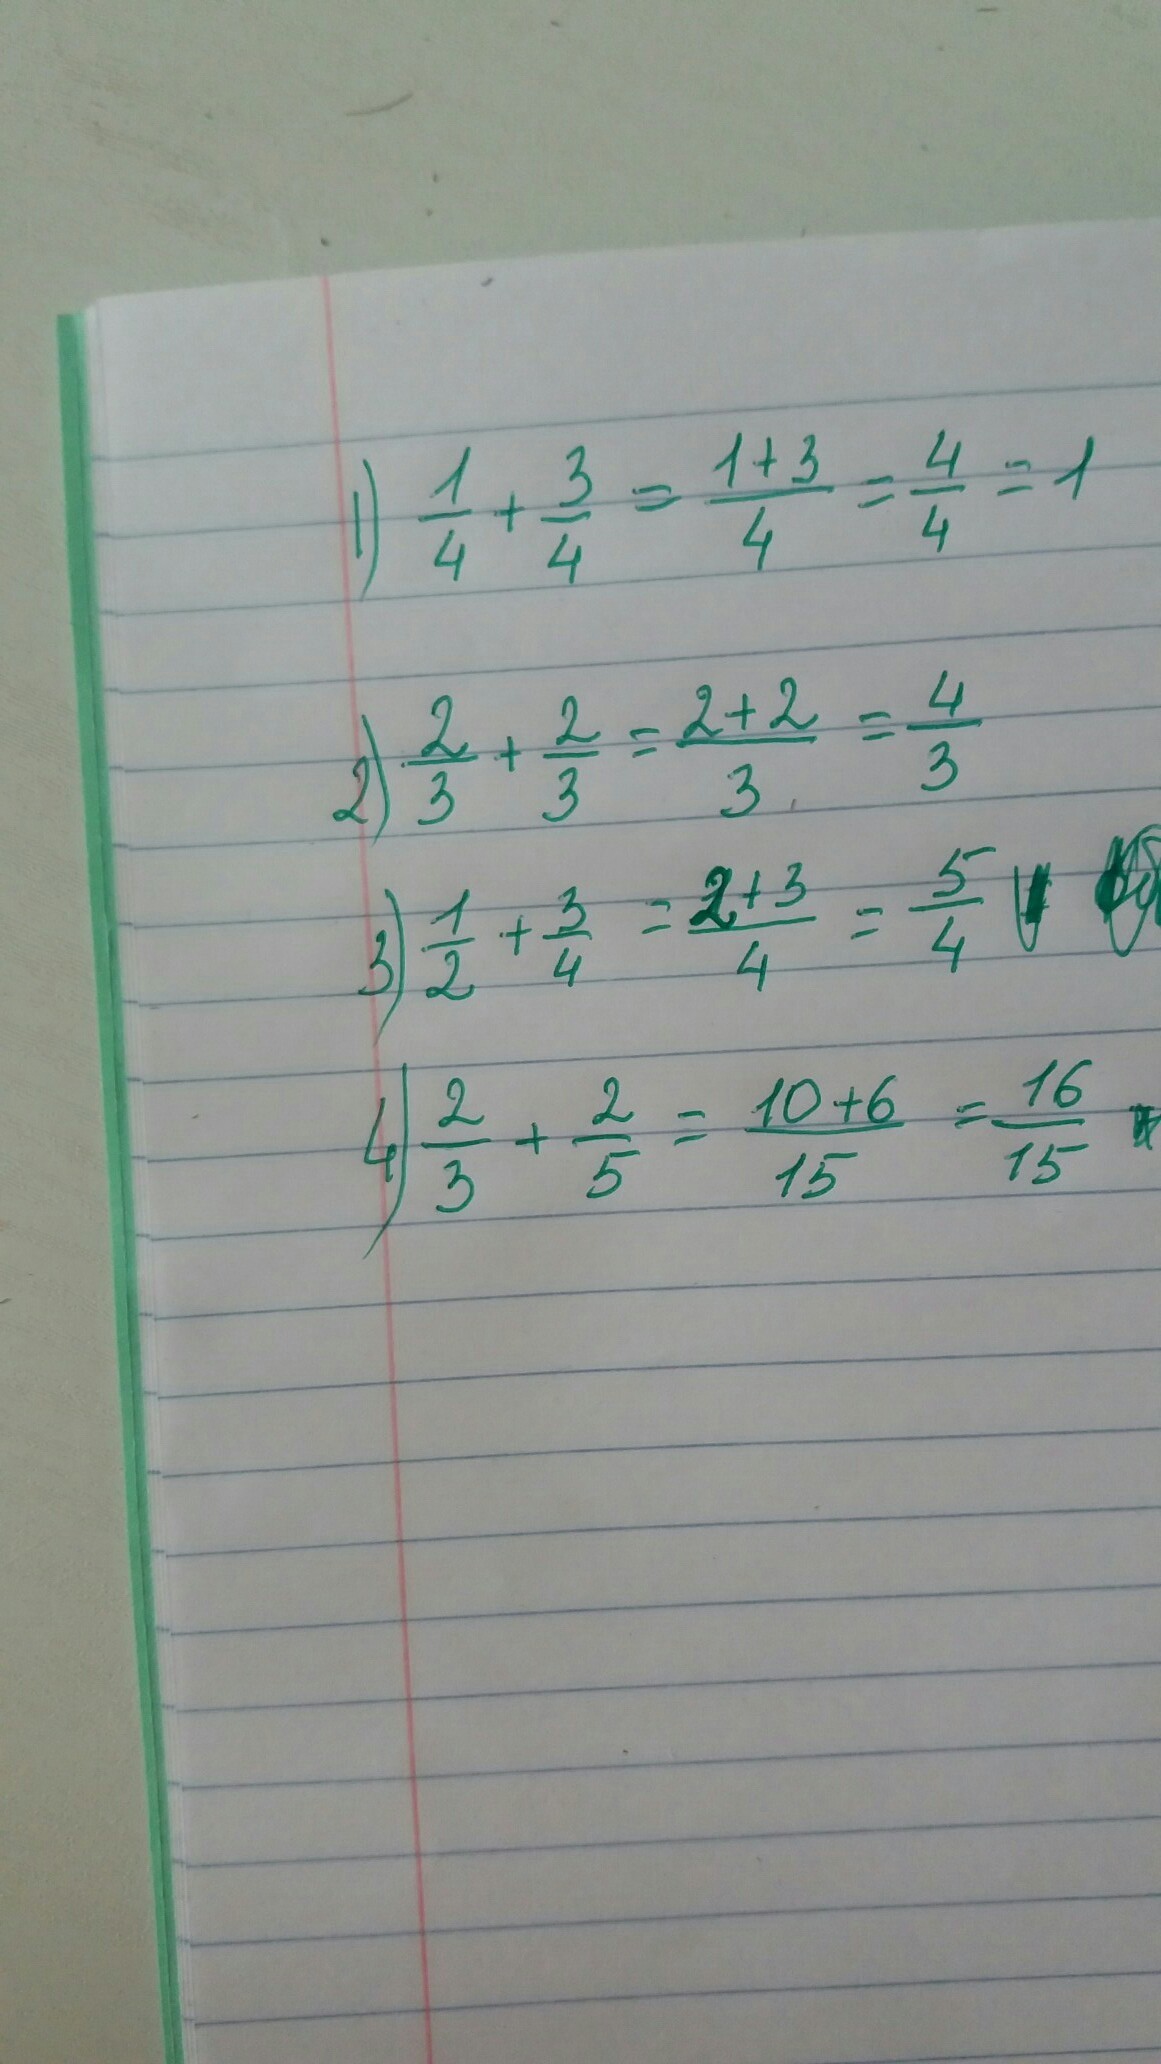 1) 1/4 + 3/4 = 1+3/4 = 4/4 = 1
2) 2/3 + 2/3 = 2+2/3 = 4/3
3) 1/2 + 3/4 = 2+3/4 = 5/4
4) 2/3 + 2/5 = 10+6/15 = 16/15